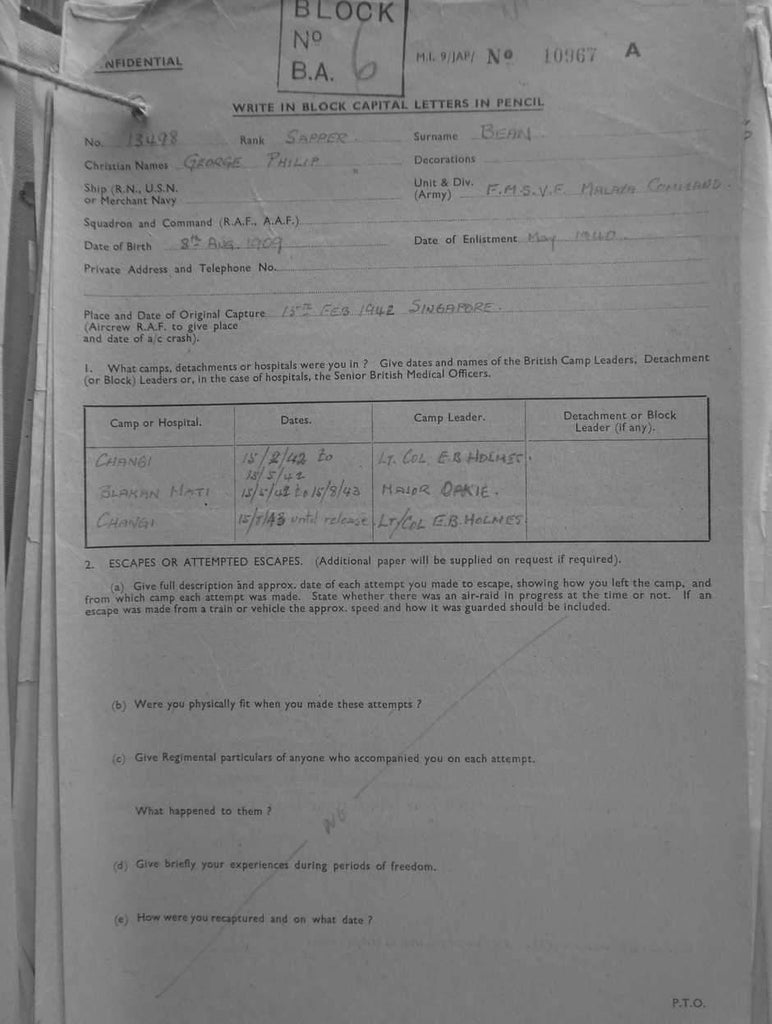 BLOCK
No 6
B.A.
NFIDENTIAL
M.I. 9/JAP/ No 10967 A
WRITE IN BLOCK CAPITAL LETTERS IN PENCIL
No. 13498 Rank SAPPER Surname BEAN
Christian Names GEORGE PHILIP Decorations
Ship (R.N., U.S.N. or Merchant Navy
Unit & Div. (Army) F.M.S.V.F. MALAYA COMMAND.
Squadron and Command (R.A.F., A.A.F.)
Date of Birth 8th AUG. 1909 Date of Enlistment MAY 1940
Private Address and Telephone No.
Place and Date of Original Capture 15TH FEB 1942 SINGAPORE.
(Aircrew R.A.F. to give place
and date of a/c crash).
1. What camps, detachments or hospitals were you in ? Give dates and names of the British Camp Leaders, Detachment
(or Block) Leaders or, in the case of hospitals, the Senior British Medical Officers.
Camp or Hospital. Dates. Camp Leader. Detachment or Block Leader (if any).
CHANGI 15/2/42 to 15/5/42 LT. COL E.B HOLMES.
BLAKAN MATI 15/5/42 to 15/8/43 MAJOR
CHANGI until release LT/COL E.B. HOLMES
2. ESCAPES OR ATTEMPTED ESCAPES. (Additional paper will be supplied on request if required).
(a) Give full description and approx. date of each attempt you made to escape, showing how you left the camp, and
from which camp each attempt was made. State whether there was an air-raid in progress at the time or not. If an
escape was made from a train or vehicle the approx. speed and how it was guarded should be included.
(b) Were you physically fit when you made these attempts ?
(c) Give Regimental particulars of anyone who accompanied you on each attempt.
What happened to them ?
(d) Give briefly your experiences during periods of freedom.
(e) How were you recaptured and on what date ?
P.T.O.